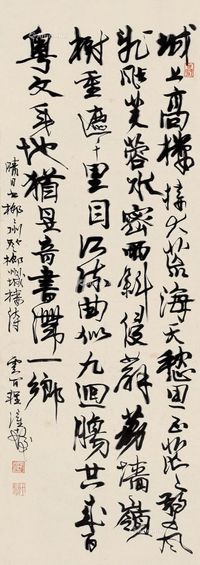 城上高樓接大荒海天愁思正茫茫驚風
亂颭芙蓉水密雨斜侵薜荔牆嶺
樹重遮千里目江流曲似九迴腸共來百
粵文身地猶是音書滯一鄉
晴日書柳州登柳州城樓詩
雲間程